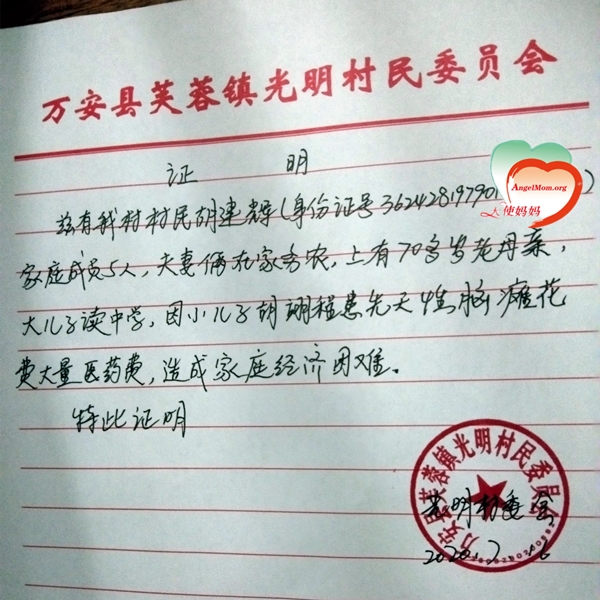 万安县芙蓉镇光明村民委员会
证 明
兹有我村村民胡建辉(身份证号362428197901 )
AngelMom.org
天使妈妈
家庭成员5人，夫妻俩在家务农，上有70多岁老母亲，
大儿子读中学，因小儿子胡翊程患先天性脑瘫花
费大量医药费，造成家庭经济困难。
特此证明
万安县芙蓉镇光明村民委员会
光明村委会
2020.7.6